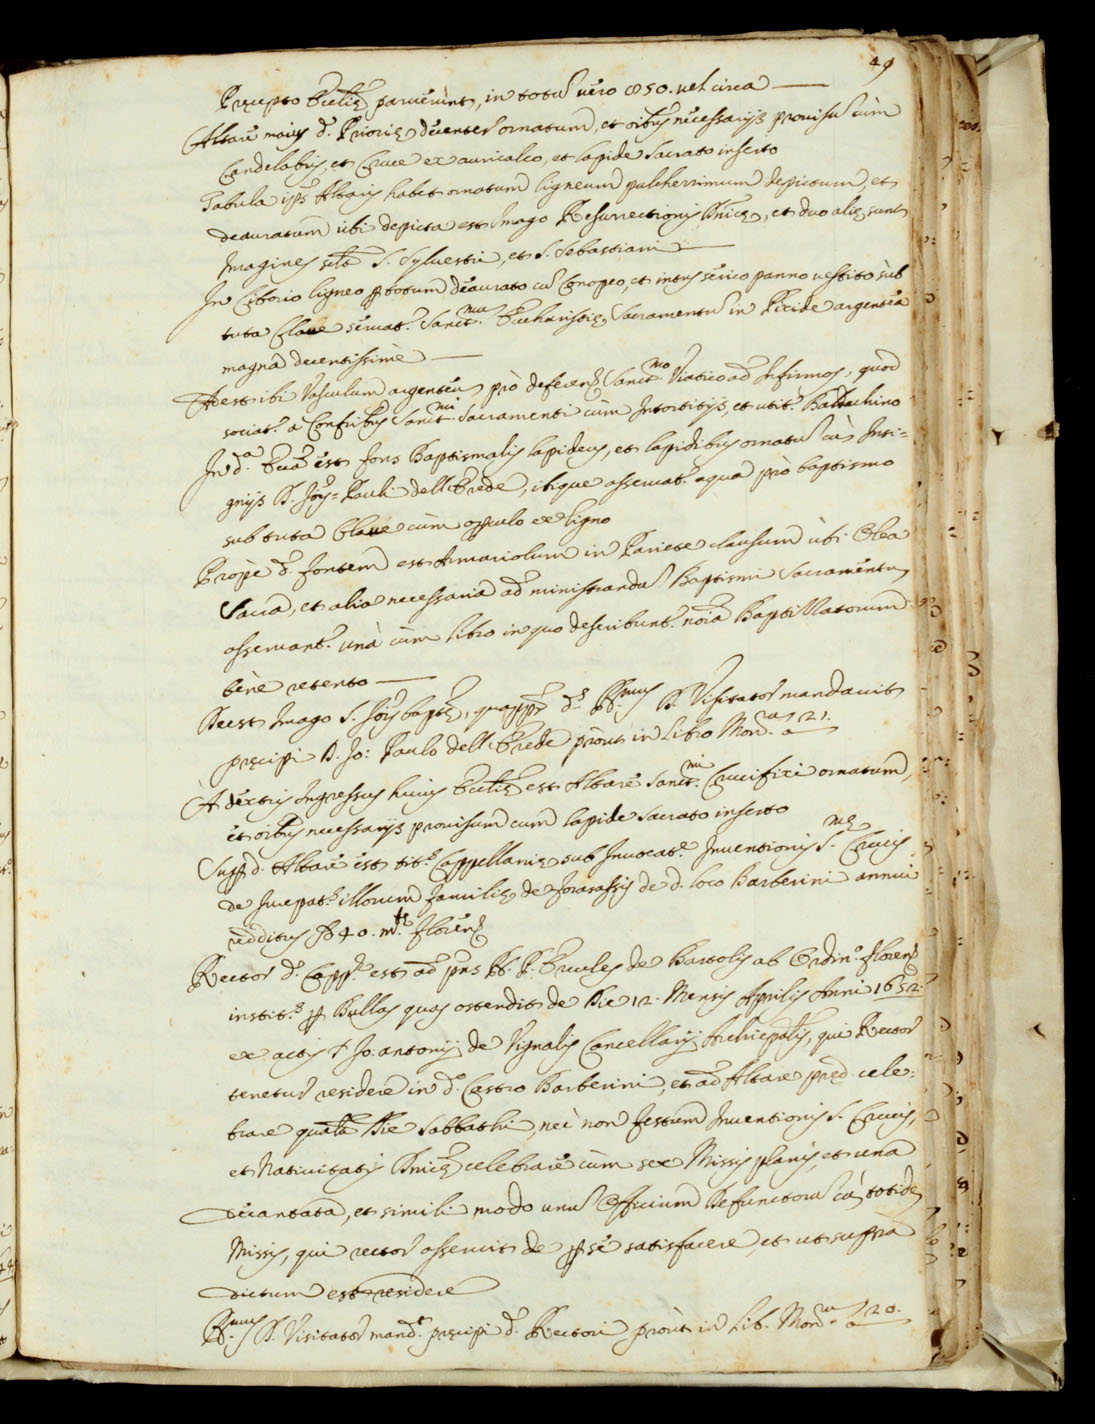 49
Precepto Eccliæ parvenint, in totu vero 850. vel circa
Altare maius d. Prioriæ decenter ornatum, et oibus necessarijs provisu cum
Candelabris, et Cruce ex auricalco, et lapide Sacrato inserto
Tabula ips Altaris habet ornatum ligneum pulcherrimum depictum, et
deauratum ubi depicta est Imago Resurrectionis Dnicæ, et duo aliæ sunt
Imagines silt S. Sylvestri, et S. Sebastiani
In Ciborio ligneo p totum deaurato cu Conopeo, et intus serico panno vestito sub
tuta Clave servat. Sanct.mu Eucharistiæ Sacramentu in Pixide argentea
magna decentissime
Adest ibi Vasculum argenteu pro deferen Sanct.mo Viatico ad Infirmos, quod
sociat. a Confribus Sanct.mi Sacramenti cum Intortitijs, et utit. Baldachino
In d.a Ecca est fons Baptismalis lapideus, et lapidibus ornatus cu Insi=
gnijs D. Jois= Pauli dell Erede, ibique asservat. aqua pro baptismo
sub tuta Clave cum opculo ex ligno
Prope d. fontem est Armariolum in Pariete clausum ubi Olea
Sacra, et alia necessaria ad ministrandu Baptismi Sacramentu
asservant. una cum libro in quo describunt. noia Baptizatorum
bene retento
Deest Imago S. Jois baptæ, d.s R.mus D. Visitator mandavit
precipi D. Jo: Paulo dell Erede prout in Libro Mon.m a 21.
A dextris Ingressus huius Eccliæ est Altare Sanct.mi Crucifixi ornatum,
et oibus necessarijs provisum cum lapide Sacrato inserto
Sup d. Altare est tit.s Cappellaniæ sub Invocat.e Inventionis S.mæ Crucis
de Iurepat.s illorum familiæ de Forasassis de d. loco Barberini annui
redditus 40. m.tæ floren
Rector d. Capp.æ est ad pns R. P. Ercules de Bartolis ab Ordin.o floren
instit.s p Bullas quas ostendit de Die 12. Mensis Aprilis Anni 1652.
ex actis D Jo: antonij de Vignalis Cancellarij Archiepalis, qui Rector
tenetur residere in d. Castro Barberini, et ad Altare pred cele=
brare qualt Die Sabbathi, nec non festum Inventionis S. Crucis,
et Nativitatis Dnicæ celebrare cum sex Missis planis, et una
decantata, et simili modo unu Officium Defunctoru cu totide
Missis, qui rector asseruit de p se satisfacere, et ut supra
dictum est residere
R.mus D. Visitator mand.t precipi d. Rectori prout in Lib. Mon.m a 20.